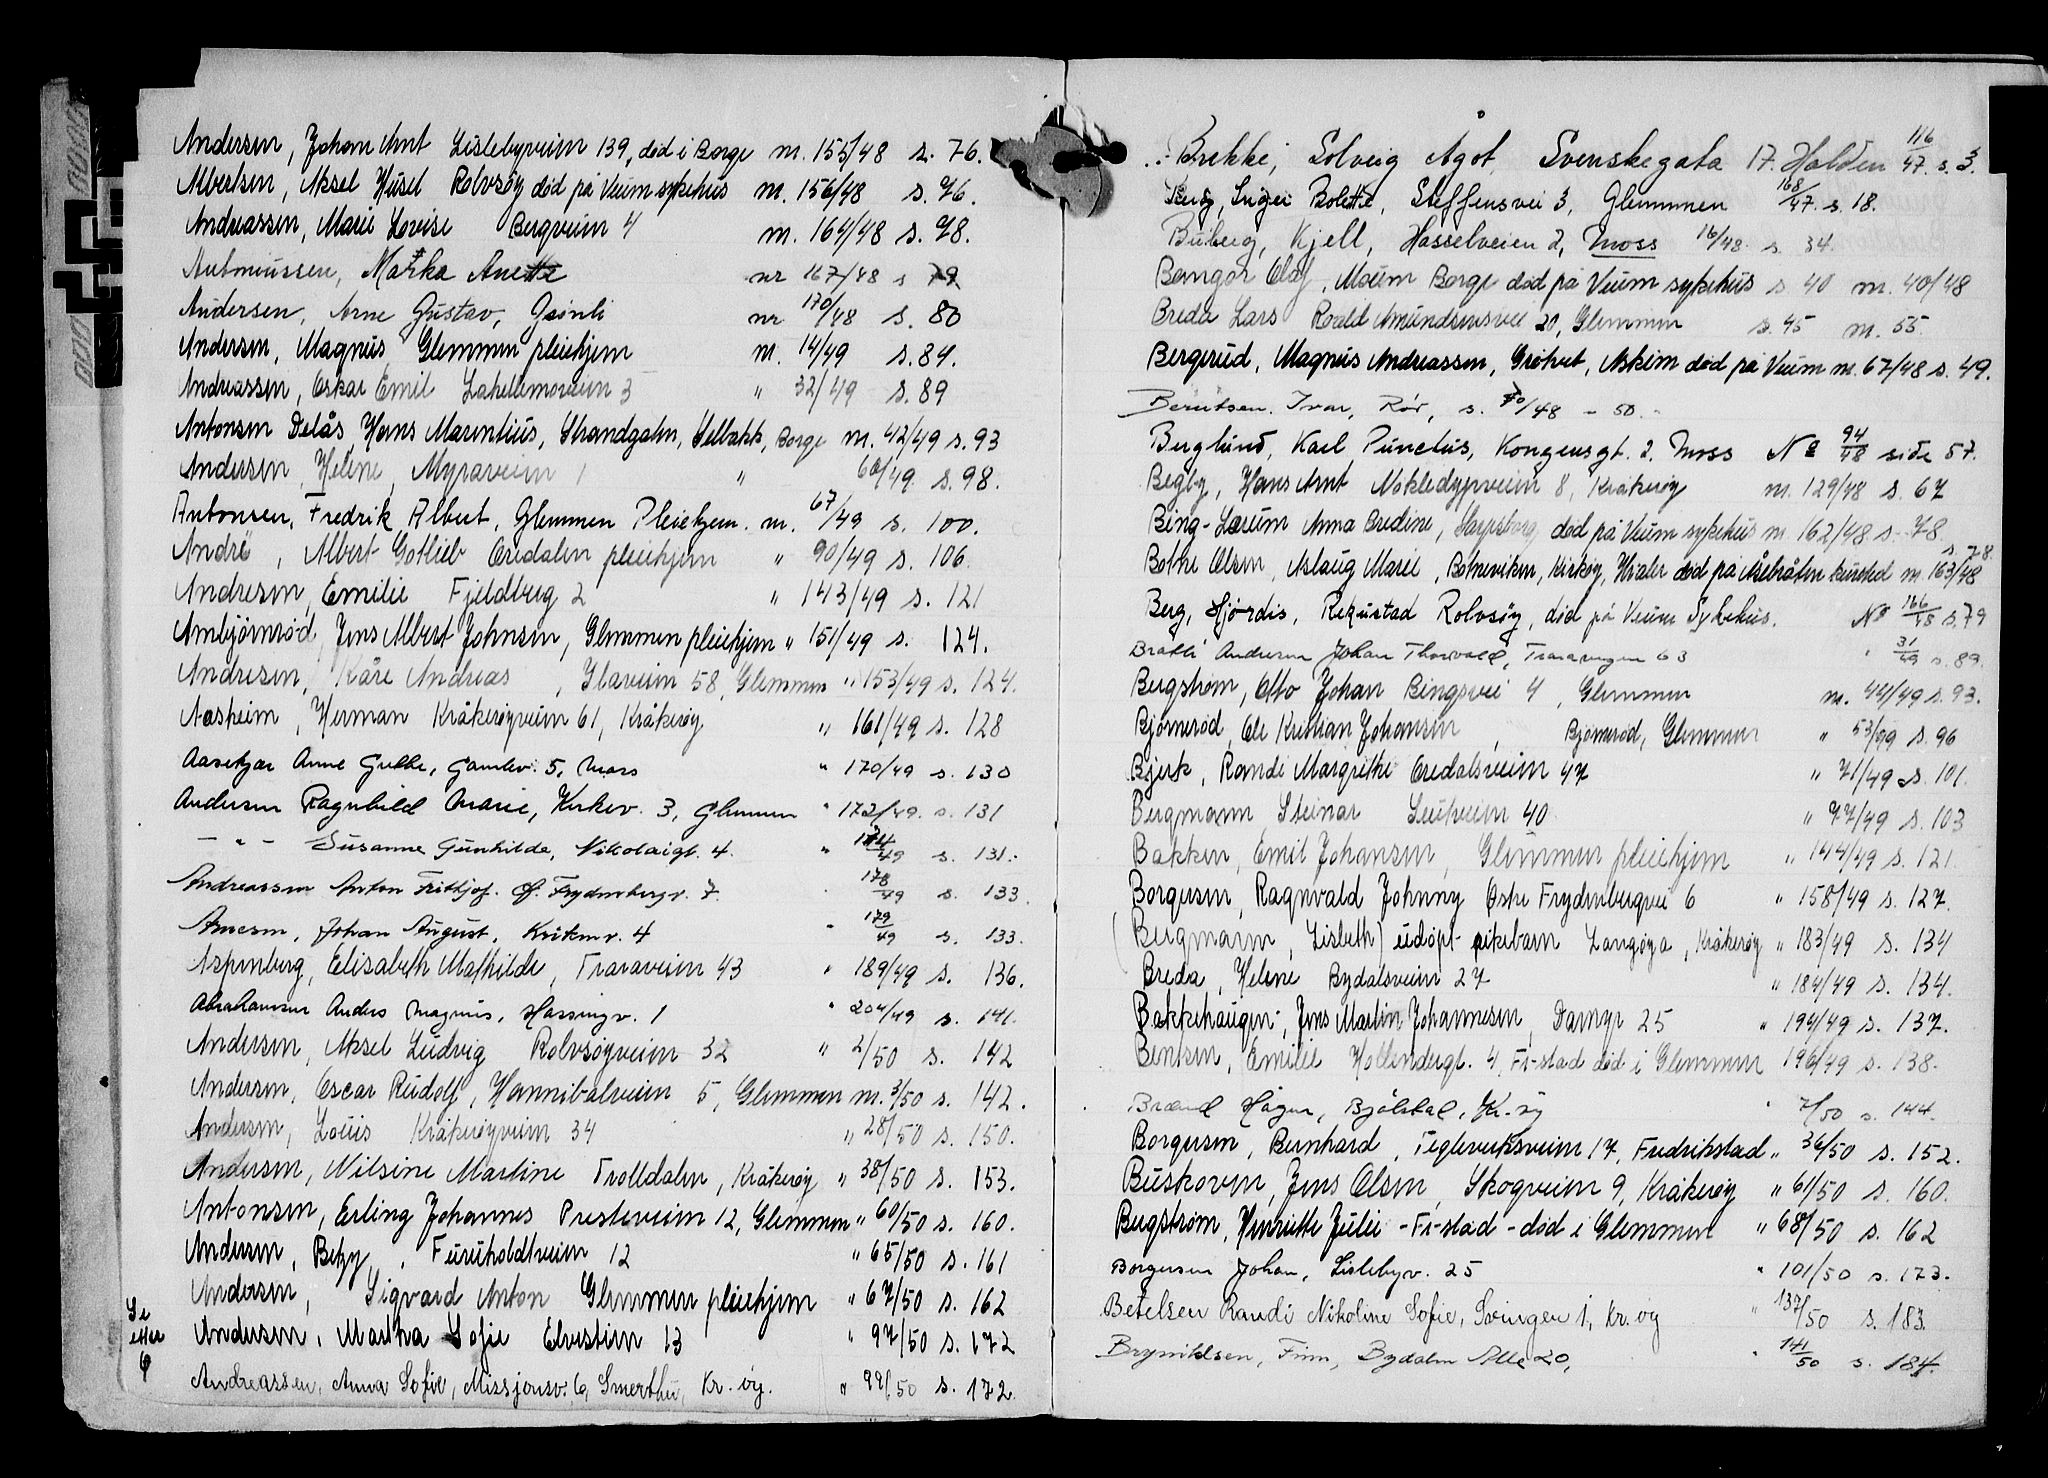 Andersen, Johan Arnt Lislebyveien 139, død i Borge nr. 155/48 s. 76.
Albertsen, Aksel Husel Rolvsøy død på Veum sykehus nr. 156/48 s. 76.
Andreassen, Marie Lovise Bergveien 4 nr. 164/48 s. 78.
Antoniussen, Marka Anette nr 167/48 s 79
Andersen, Arne Gustav, Grønli nr 170/48 s. 80
Andersen, Magnus Glemmen pleiehjem nr. 14/49 s. 84.
Andreassen, Oskar Emil Lahellemoveien 3 " 32/49 s. 89
Antonsen Delås, Hans Marentius, Strandgaten, Selbakk, Borge nr. 42/49 s. 93
Andersen, Helene, Myraveien 1 " 60/49 s. 98.
Antonsen, Fredrik Albert, Glemmen Pleiehjem. nr. 67/49 s. 100.
André, Albert Gotlieb Øredalen pleiehjem " 90/49 s. 106
Andresen, Emilie Fjeldberg 2 " 143/49 s. 121
Ambjørnrød, Jens Albert Johnsen, Glemmen pleiehjem " 151/49 s. 124.
Andresen, Kåre Andreas, Glaveien 58, Glemmen " 153/49 s. 124.
Aasheim, Herman Kråkerøyveien 61, Kråkerøy " 161/49 s. 128
Aasekjær Anne Grethe, Gamlev. 5, Moss " 170/49 s. 130
Andersen Ragnhild Marie, Kirkev. 3, Glemmen " 172/49. s. 131
— " — Susanne Gunhilde, Nikolaigt. 4. " 174/49 s. 131.
Andreassen Anton Frithjof. Ø. Frydenbergv. 7. 178/49 s. 133.
Arnesen, Johan August, Knitenv. 4 " 179/49 s. 133.
Aspenberg, Elisabeth Mathilde, Traraveien 43 " 189/49 s. 136.
Abrahamsen Anders Magnus, Hassingv. 1 " 204/49 s. 141.
Andersen, Aksel Ludvig Rolvsøyveien 32 " 2/50 s. 142
Andersen, Oscar Rudolf, Hannibalveien 5, Glemmen nr. 3/50 s. 142.
Andersen, Louis Kråkerøyveien 34 " 28/50 s. 150.
Andersen, Nilsine Martine Trolldalen, Kråkerøy " 38/50 s. 153.
Antonsen, Erling Johannes Presteveien 12, Glemmen " 60/50 s. 160.
Andersen, Betzy, Furuholdtveien 12 " 65/50 s. 161
Andersen, Sigvard Anton Glemmen pleiehjem " 67/50 s. 162
Se etter 6
Andersen, Martha Sofie Elvestien 13 " 97/50 s. 172
Andreassen, Anna Sofie, Missjonsv. 6, Smertu, Kr. øy. " 99/50 s. 172.
Brekke, Solveig Ågot, Svenskegata 17. Halden 116/47. s. 3.
Berg, Inger Bolette, Steffensvei 3, Glemmen 168/47. s. 18.
Buberg, Kjell, Hasselveien 2, Moss 16/48. s. 34.
Bangor Olaf, Moum Borge død på Veum sykehus s 40 nr. 40/48
Breda Lars Roald Amundsensvei 20, Glemmen s. 45 nr. 55.
Bergerud, Magnus Andreassen, Grøtvet, Askim død på Veum nr. 67/48 s. 49.
Berntsen. Ivar, Rør, s. 70/48 - 50.
Berglund, Karl Punctus, Kongensgt. 2, Moss Nº 94/48 side 57.
Begby, Hans Arnt Nøkledypveien 8, Kråkerøy nr. 129/48 s. 67
Bing-Lærum Anna Bredine, Sarpsborg, død på Veum sykehus nr. 162/48 s. 78.
Botne Olsen, Aslaug Marie, Botneviken, Kirkøy, Hvaler død på Åsebråten kursted nr. 163/48 s. 78.
Berg, Hjørdis, Rekustad Rolvsøy, død på Veum Sykehus. Nº 166/48 s. 79
Bratli Andersen Johan Thorvald, Traraveien 63 " 31/49 s. 89.
Bergstrøm, Otto Johan Bingsvei 4, Glemmen nr. 44/49 s. 93.
Bjørnerød, Ole Kristian Johansen, Bjørnerød, Glemmen " 53/49 s. 96
Bjerk, Randi Margrethe Ørebdalsveien 47 " 71/49 s. 101.
Bergmann Steinar Leieveien 40 " 77/49 s. 103
Bakken, Emil Johansen, Glemmen pleiehjem " 144/49 s. 121.
Borgersen, Ragnvald Johnny Østre Frydenbergvei 6 " 158/49 s. 127.
(Bergmann, Lisbeth) udøpt pikebarn Langøya, Kråkerøy " 183/49 s. 134
Breda, Helene Bydalsveien 27 " 184/49 s. 134.
Bakkehaugen, Jens Martin Johannesen, Damyr 25 " 194/49 s. 137.
Bentsen, Emilie Hollendergt. 4, Fr-stad død i Glemmen 196/49 s. 138.
Brænd Hågen, Bjølstad, Kr. øy " 7/50 s. 144.
Borgersen, Bernhard, Teglverksveien 17, Fredrikstad " 36/50 s. 152.
Buskoven, Jens Olsen, Skogveien 9, Kråkerøy " 61/50 s. 160.
Bergstrøm, Henriette Julie - Fr-stad - død i Glemmen " 68/50 s. 162
Borgersen Johan, Lislebyv. 25 " 101/50 s. 173.
Betelsen Randi Nikoline Sofie, Svingen 1, Kr. øy " 137/50 s. 183.
Brynildsen, Finn, Bydalen Alle 20, " 141/50 s. 184.